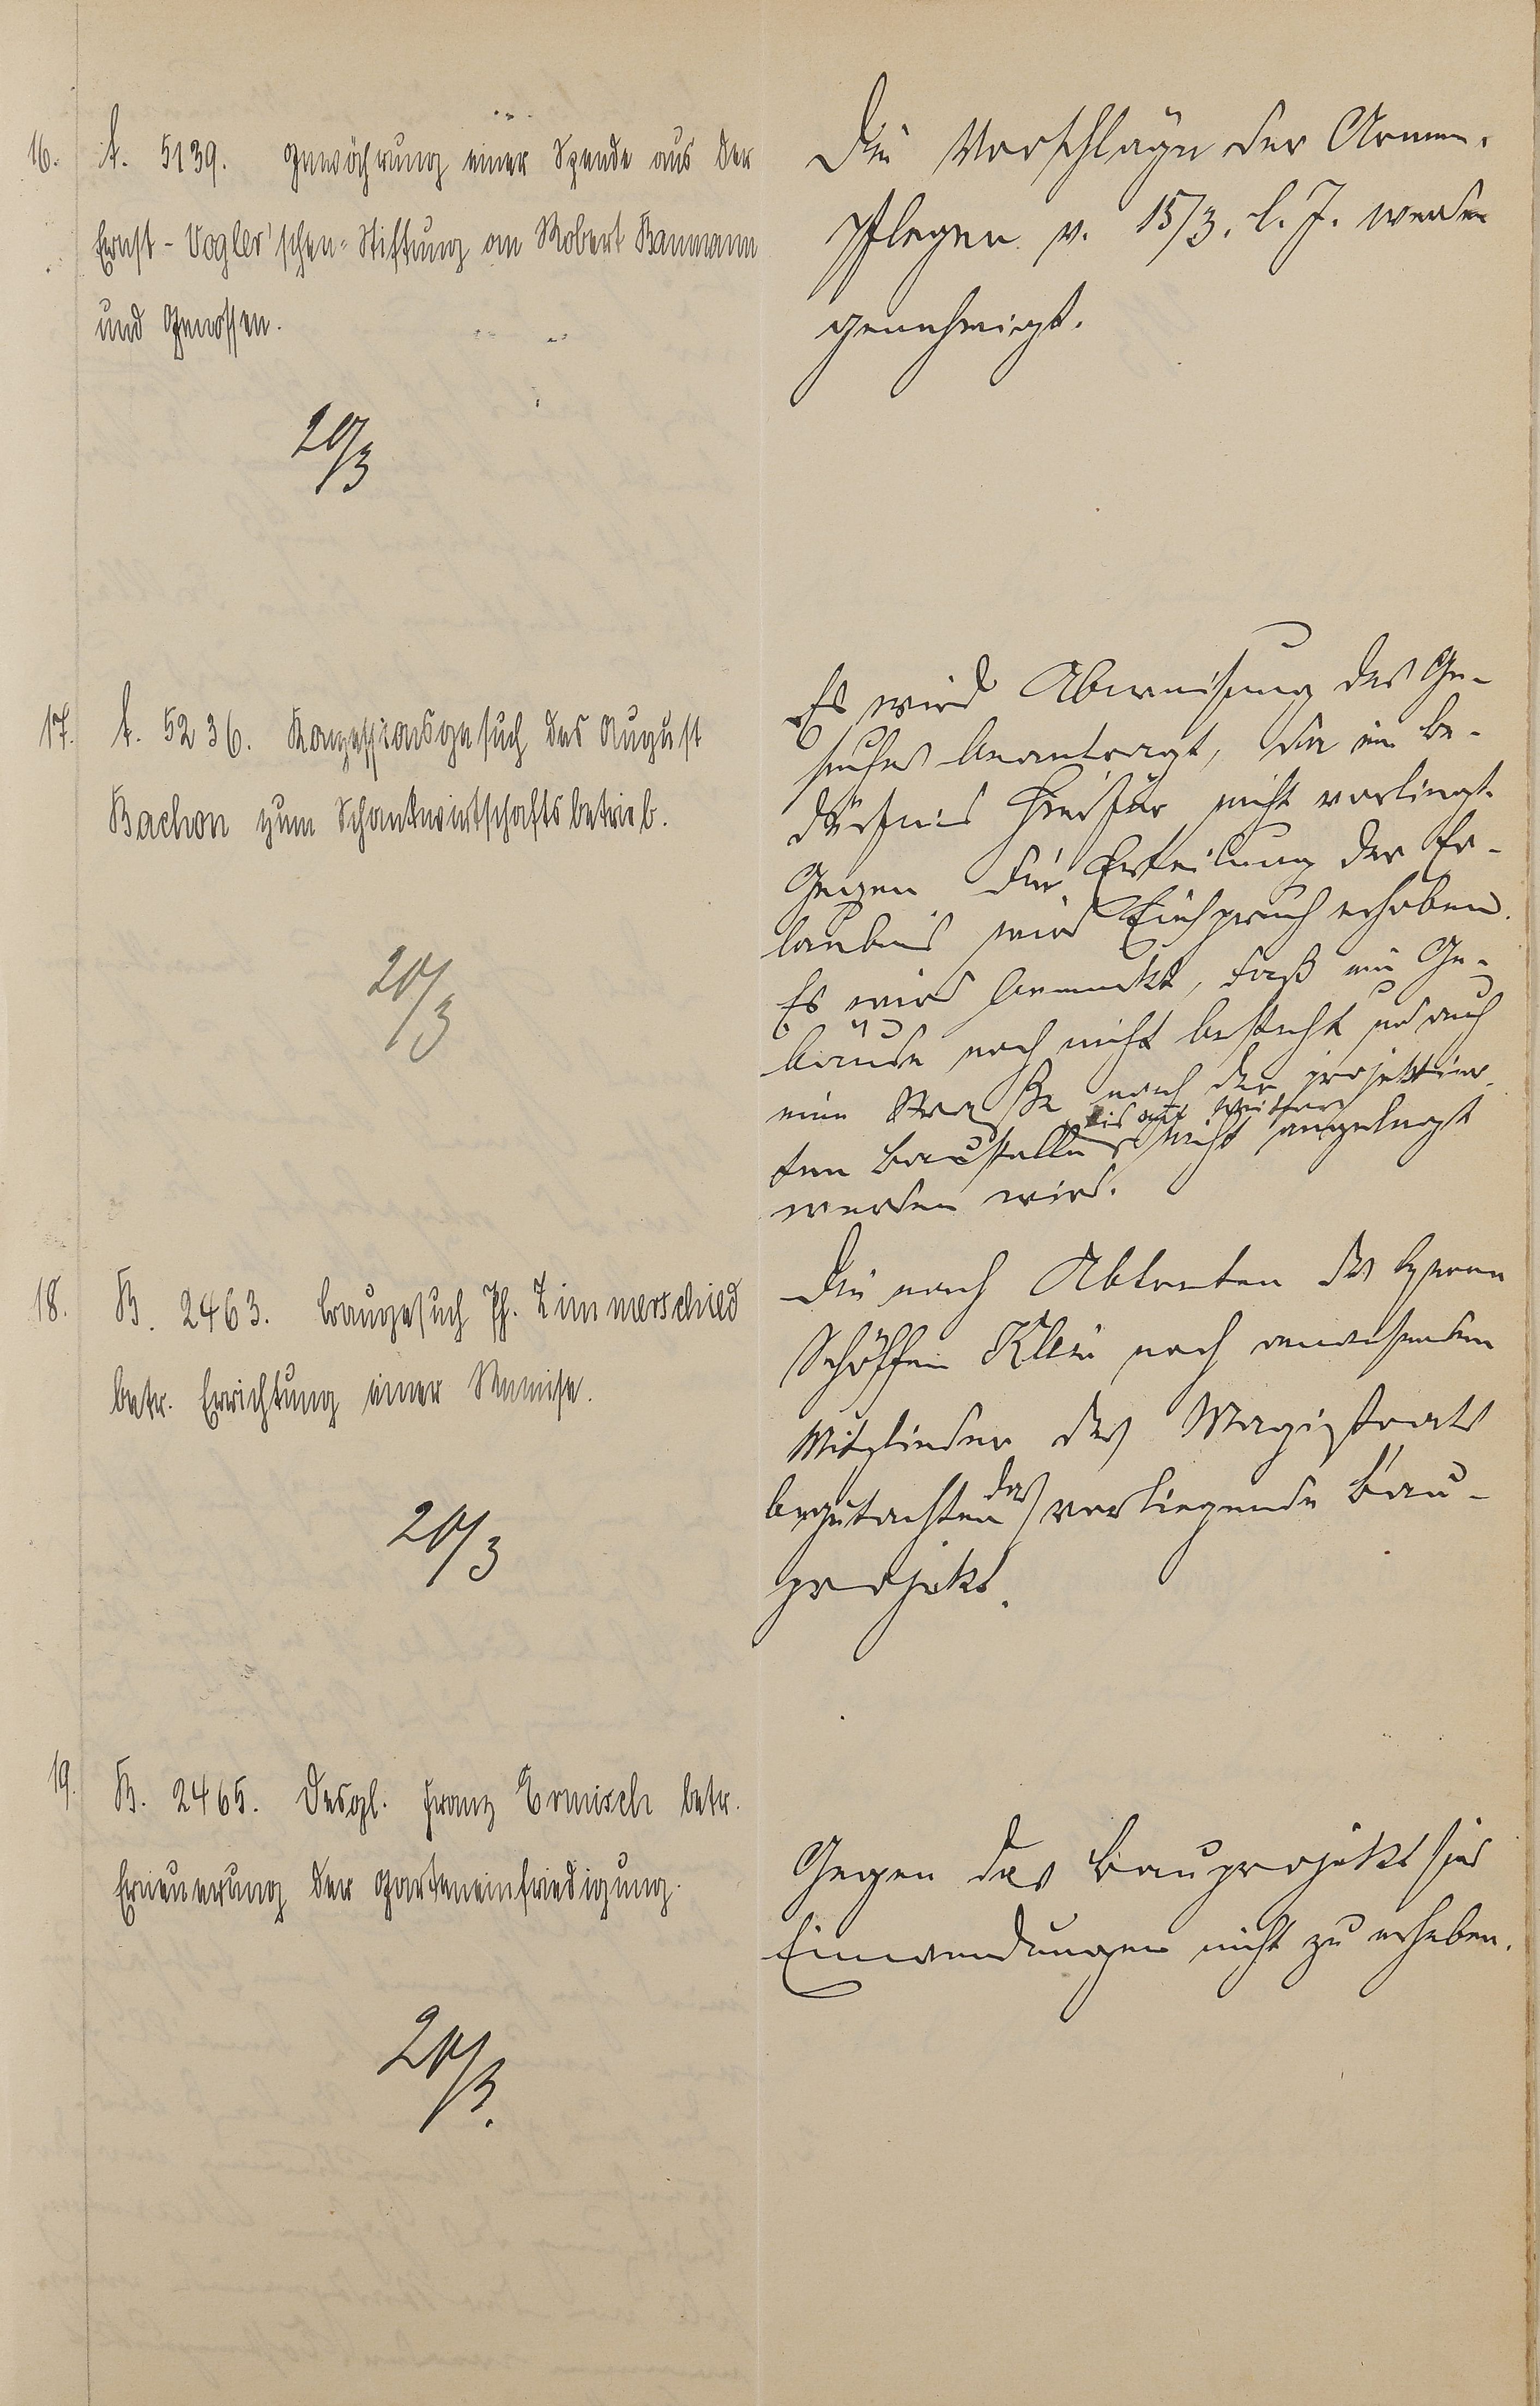 16. A. 5139. Gewährung einer Spende aus der
Ernst-Vogler'schen-Stiftung an Robert Baumann
und Genossen.
20/3
Die Vorschläge der Armen-
pflegen v. 15/3. l. J. werden
genehmigt.
17. A. 5236. Konzessionsgesuch des August
Bachon zum Schankwirtschaftsbetrieb.
20/3
Es wird Abweisung des Ge-
suches beantragt, da ein Be-
dürfnis hierfür nicht vorliegt.
Gegen die Erteilung der Er-
laubnis wird Einspruch erhoben.
Es wird bemerkt, daß ein Ge-
bäude noch nicht besteht und auch
eine Straße nach der projektier-
ten Baustelle bis auf Weiteres nicht angelegt
werden wird.
18. B. 2463. Baugesuch Ph. Zimmerschied
betr. Errichtung einer Remise.
20/3
Die nach Abtreten des Herrn
Schöffen Klein noch anwesenden
Mitglieder des Magistrats
begutachten das vorliegende Bau-
projekt.
19. B. 2465. Desgl. Franz Ermisch betr.
Erneuerung der Garteneinfriedigung.
20/3.
Gegen das Bauprojekt sind
Einwendungen nicht zu erheben.